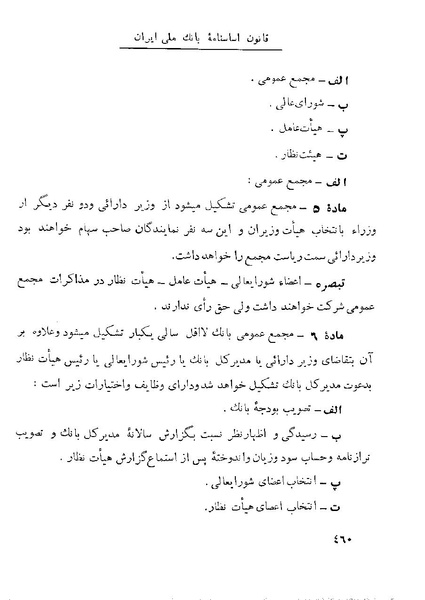 قانون اساسنامهٔ بانك ملی ایران
الف – مجمع عمومی .
ب – شورای‌عالی .
پ – هیأت‌عامل .
ت – هیئت نظار .
الف – مجمع عمومی :
مادهٔ ۵ – مجمع عمومی تشکیل میشود از وزیر دارائی ودو نفر دیگر از
وزراء باانتخاب هیأت وزیران و این سه نفر نمایندگان صاحب سهام خواهند بود
وزیردارائی سمت ریاست مجمع را خواهد داشت.
تبصره – اعضاء شورایعالی – هیأت عامل – هیأت نظار در مذاکرات مجمع
عمومی شرکت خواهند داشت ولی حق رأی ندارند .
مادهٔ ۶ – مجمع عمومی بانك لااقل سالی یکبار تشکیل میشود وعلاوه بر
آن بتقاضای وزیر دارائی یا مدیرکل بانك یا رئیس شورایعالی یا رئیس هیأت نظار
بدعوت مدیرکل بانك تشکیل خواهد شدودارای وظایف واختیارات زیر است :
الف – تصویب بودجهٔ بانك .
ب – رسیدگی و اظهارنظر نسبت بگزارش سالانهٔ مدیرکل بانك و تصویب
ترازنامه وحساب سود وزیان واندوختهٔ پس از استماع‌گزارش هیأت نظار .
پ – انتخاب اعضای شورایعالی .
ت – انتخاب اعضای هیأت نظار.
۴۶۰